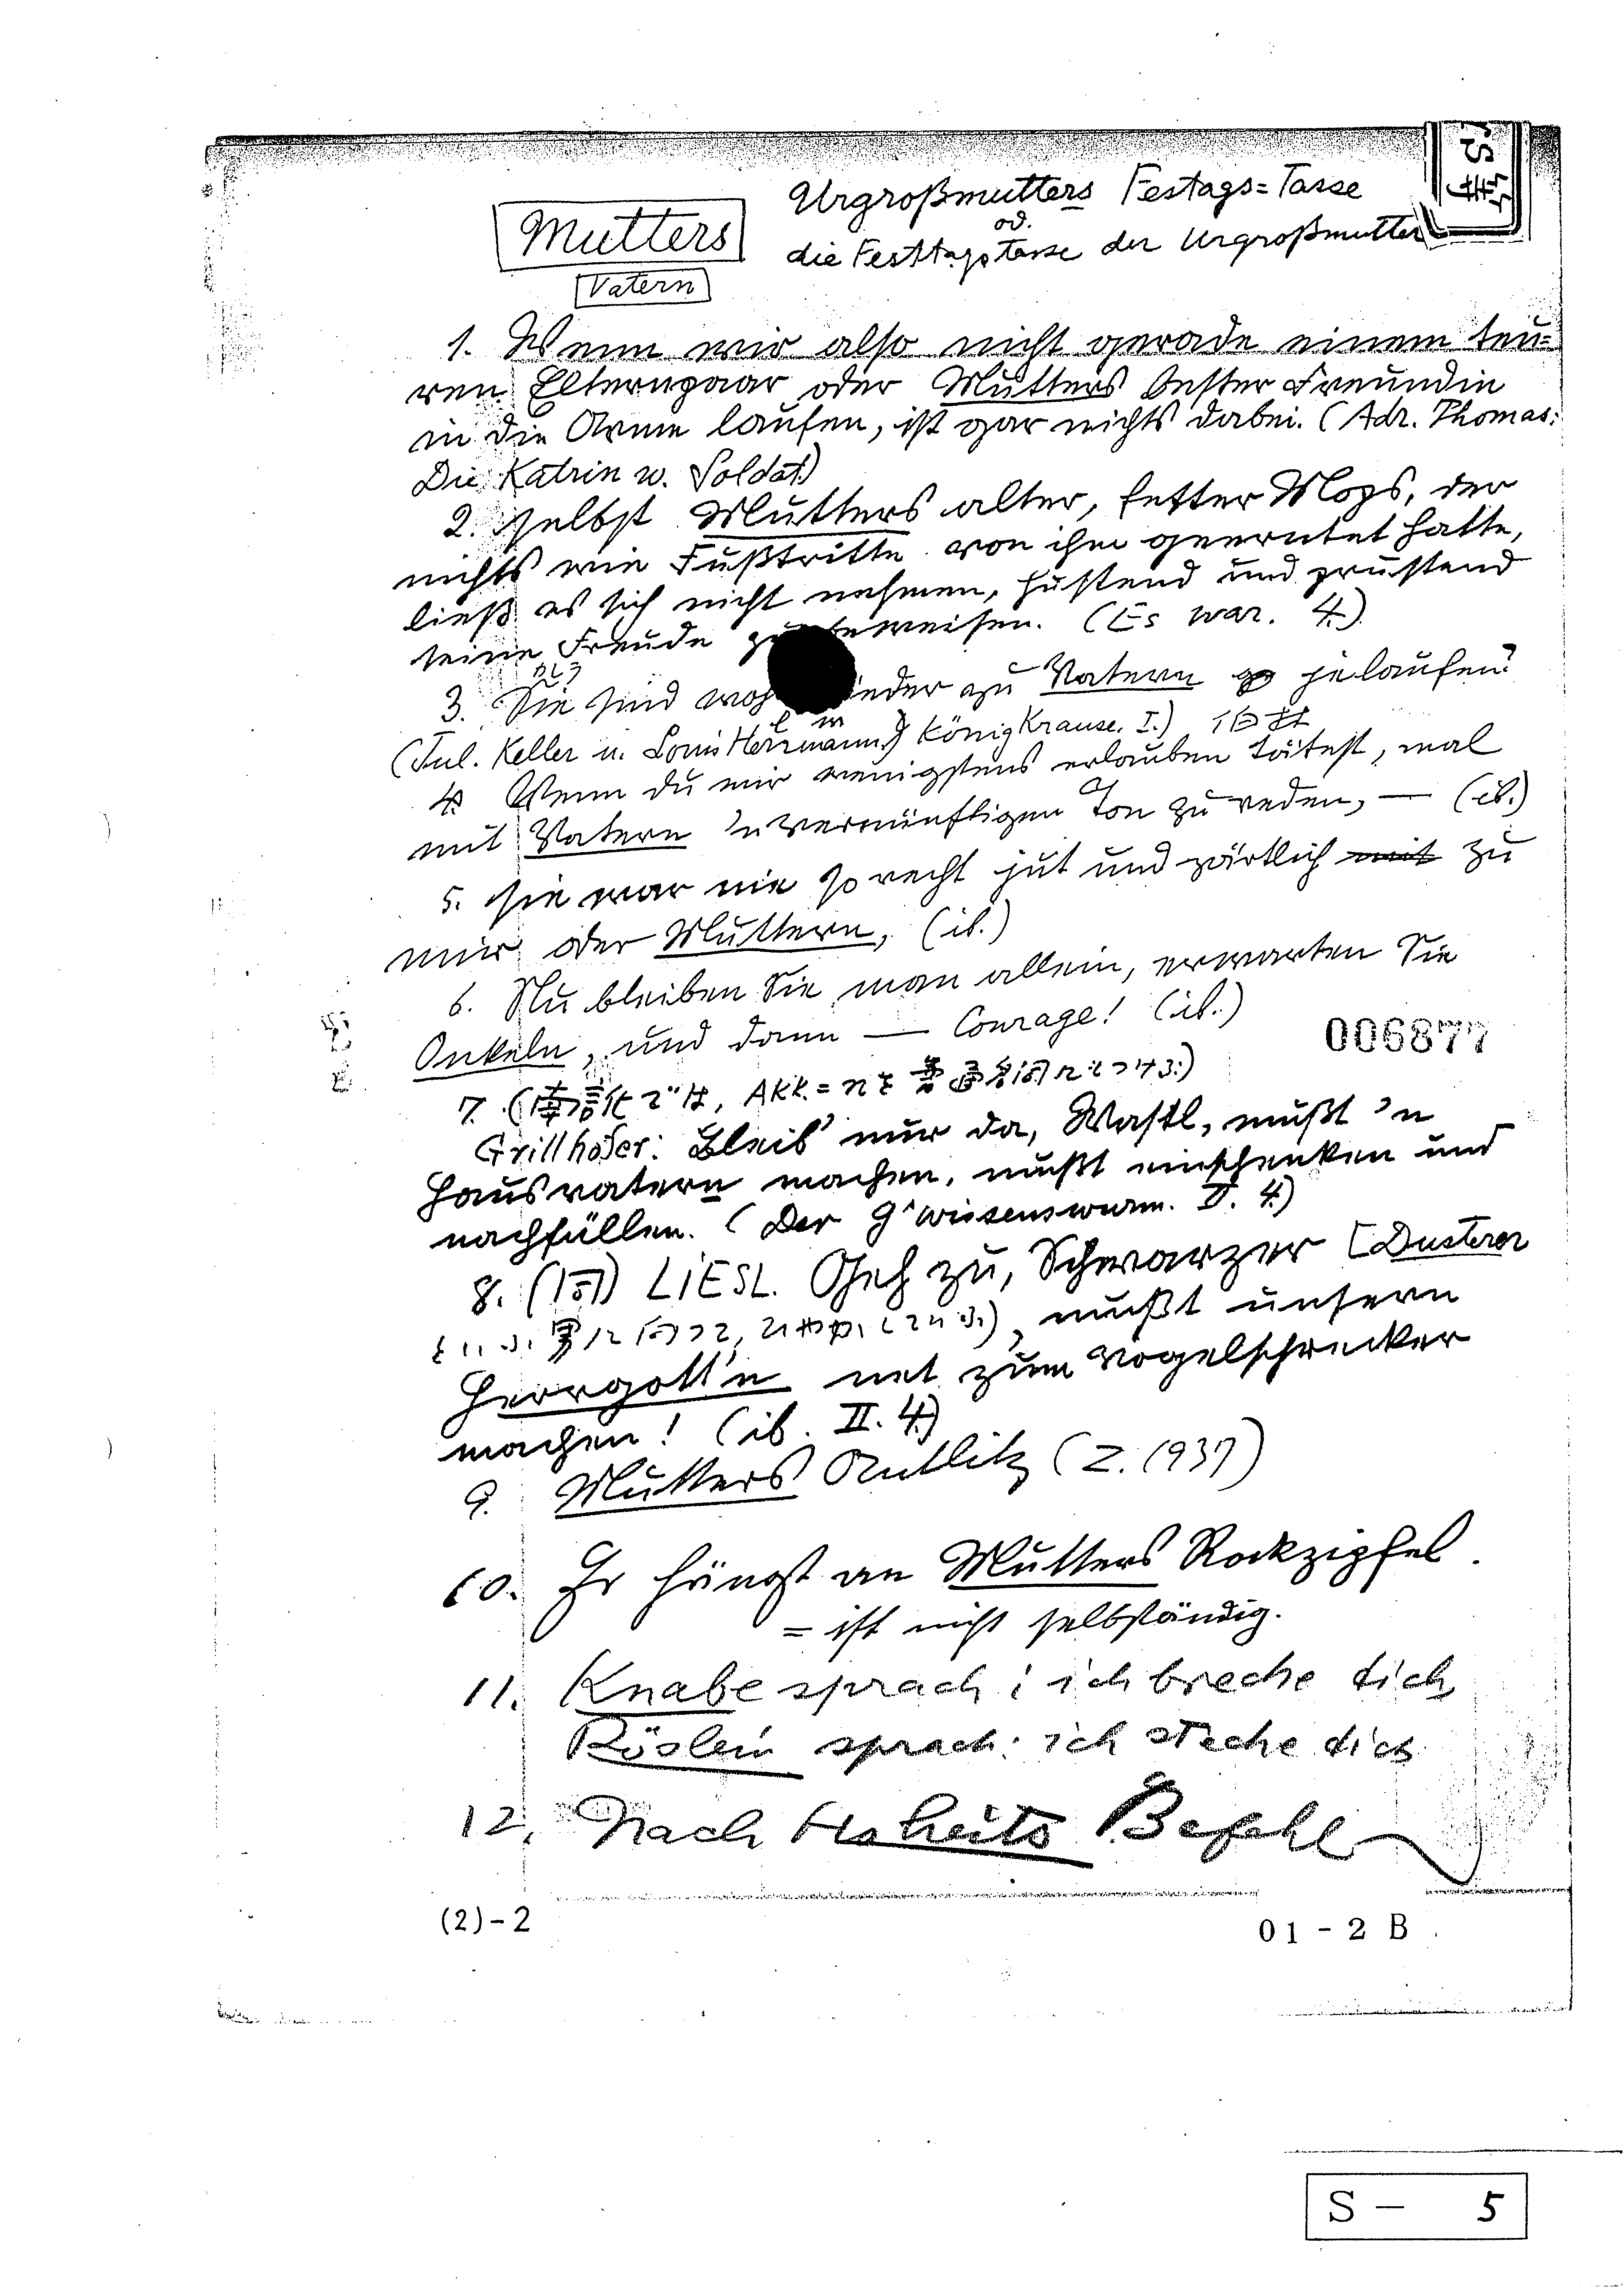 Urgroßmutters Festags=Tasse
od.
die Festtagstasse der Urgroßmutter
Mutters
Vatern
1. Wenn wir also nicht gerade einem teu=
ren Elternpaar oder Mutters bester Freundin
in die Arme laufen, ist gar nichts dabei. (Adr. Thomas:
Die Katrin w. Soldat)
2. Selbst Mutters alter, fetter Mops, der
nichts wie Fußtritte von ihm geerntet hatte,
ließ es sich nicht nehmen, hustend und prustend
seine Freude zu beweisen. (Es war. 4.)
3. Sie sind woh ieder zu Vatern jelaufen?
(Jul. Keller u. Louis Herrmann) König Krause. I.) 伯林
4. Wenn du mir wenigstens erlauben tätest, mal
mit Vatern 'n vernünftigen Ton zu reden, — (ib.)
5. Sie war nie so recht jut und zärtlich mit zu
mir oder Muttern, (ib.)
6. Nu bleiben Sie man allein, erwarten Sie
Onkeln, und dann — Courage! (ib.)
006877
7. (南독 では, Akk. = n を 普通名詞につける)
Grillhofer: Bleib' nur da, Wastl, mußt 'n
Hausvatern machen, mußt einschenken und
nachfüllen. (Der G'wissenswurm. II. 4.)
8. (同) LIESL. Geh zu, Schwarzer [Dusterer
という男に向って, ひやかしている), mußt unsern
Herrgott'n net zum Vogelschrecker
machen! (ib. II. 4.)
9. Mutters Antlitz (Z. 1937)
10. Er hängt an Mutters Rockzipfel.
= ist nicht selbständig.
11. Knabe sprach: ich breche dich,
Röslein sprach: ich steche dich
12. Nach Hoheits Befehl
(2)-2
01-2 B
S- 5